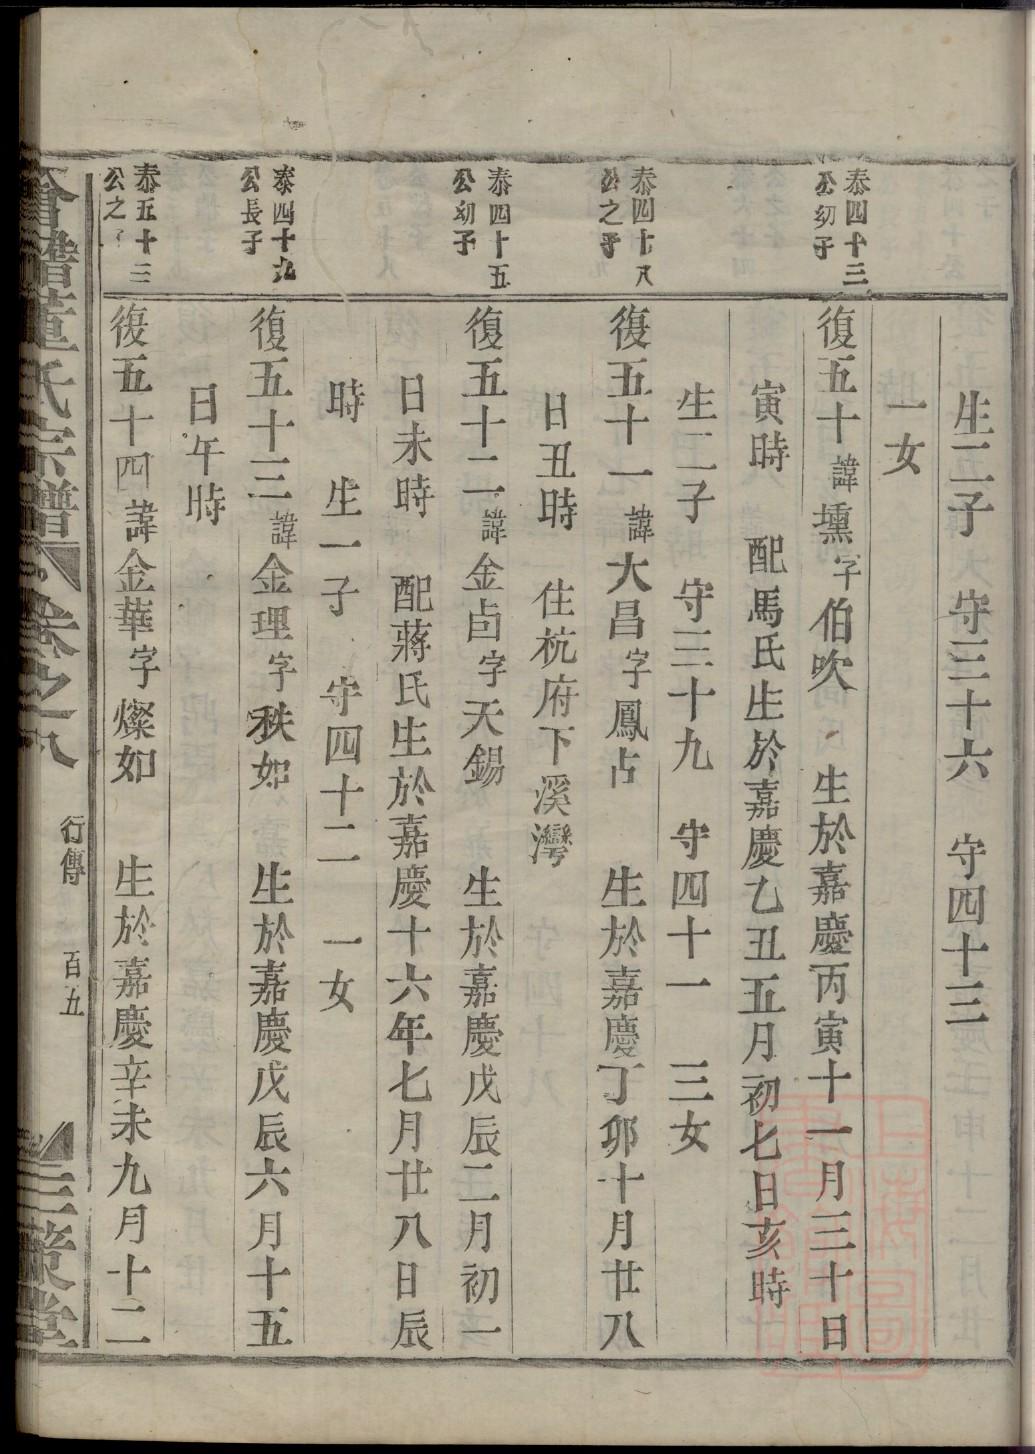 生二子　守三十六　守四十三
一女
泰四十三
公幼子
復五十諱壎字伯吹　生於嘉慶丙寅十一月三十日
寅時　配馬氏生於嘉慶乙丑五月初七日亥時
生二子　守三十九　守四十一　三女
泰四十八
公之子
復五十一諱大昌字鳳占　生於嘉慶丁卯十月廿八
日丑時　住杭府下溪灣
泰四十五
公幼子
復五十二諱金卣字天錫　生於嘉慶戊辰二月初一
日未時　配蔣氏生於嘉慶十六年七月廿八日辰
時　生一子　守四十二　一女
泰四十九
公長子
復五十三諱金理字秩如　生於嘉慶戊辰六月十五
日午時
泰五十三
公之子
復五十四諱金華字燦如　生於嘉慶辛未九月十二
董氏宗譜　卷之八　行傳　百五　三策堂